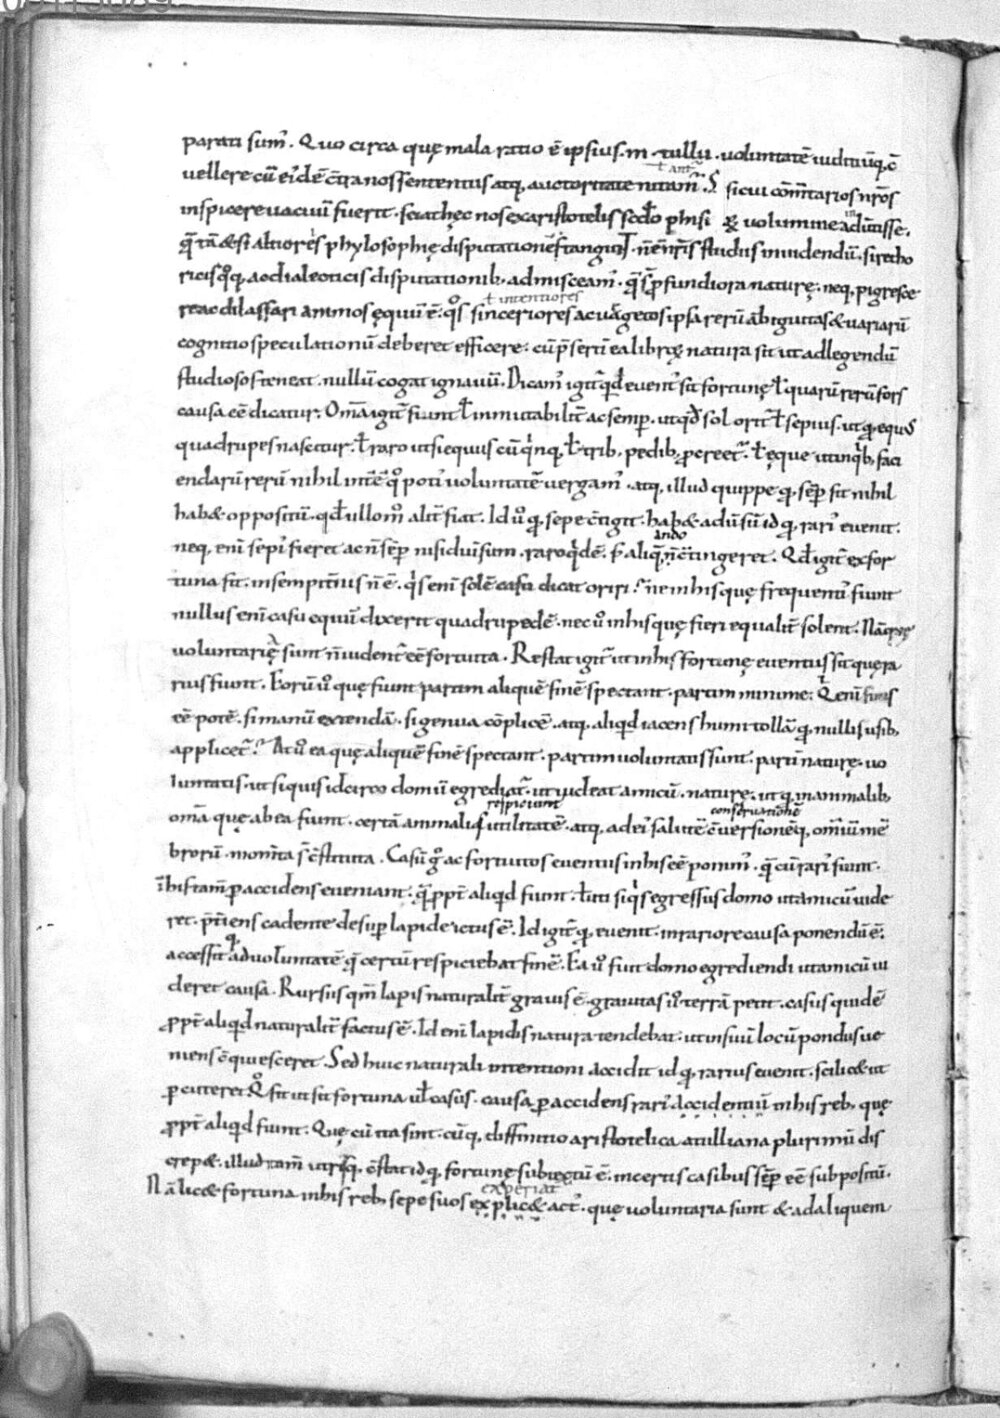 parati sum᷒. Quo circa quę mala ratio ē ipsius. m. tullii. uoluntatē iudiciūq; c̄
uellere cū eidē c̄tra nos sententiis atq; auctoritate nitam᷒. S; sicui cōm̄tarios nr̄os
inspicere uacuū fuerit. sciat hęc nos ex aristotelis sc̄do phisi ę uolumine adūtisse.
quā tā &si altiores phylosophię disputationes tangunt. n̄ ē nr̄is studiis inuidendū. si retho
ricis q̊q; ac dialecticis disputationib; admisceam᷒. quā si p̄fundiora naturę. neq; pigresce
re ac dilassari animos ęquū ē. q̊s
ł intentiores
sinceriores ac uegetos ipsa rerū ābiguitas & uariarū
cognitio speculationū deberet efficere. cū p̄sertī ea librę natura sit ut ad legendū
studiosos teneat. nullū cogat ignauū. Dicam᷒ igit᷒ quid euent᷒ sit fortunę ł quarū rerū fors
causa eē dicatur. Om̄a igit᷒ fiunt ł inmutabilit᷒ ac semp. ut q̄d sol orit᷒ ł sepius. ut q̄ equus
quadrupes nascitur. ł raro ut si equus cū q̇nq; ł trib; pedib; p̄creet᷒. ł ęque ut inq̇b; faci
endarū rerū nihil int̄ē q̊ poti᷒ uoluntatē uergam᷒. atq; illud quippe q̄ sēp fit nihil
hab& oppositū. qđ ullom̊ alit᷒ fiat. Id ů q̄ sepe c̄tigit. hab& aduersū id q̄ rari᷒ euenit.
neq; enī sepi᷒ fieret ac n̄ sēp nisi diuisum. raro q̇dē. s; aliq̄ndo n̄ c̄tingeret. Qđ igit᷒ ex for
tuna fit. in sempit᷒nis n̄ ē. q̇s enī solē casu dicat oriri? ne in his quę frequent᷒ fiunt
nullus enī casu equū dixerit quadrupedē. nec ů in his quę fieri equalit᷒ solent. Nā quę
uoluntarię sunt n̄ uident᷒ eē fortuita. Restat igit᷒ ut in his fortunę euentus sit quę ra
rius fiunt. Eorū ů quę fiunt partim aliquē finē spectant. partim minime. Q̇s enī finis
eē potē. si manū extendā. si genua cōplicē. atq; aliqd iacens humi tollā q̄ nullis usib;
applicet᷒? At ů ea quę aliquē finē spectant. partim uoluntatis sunt. partī naturę. uo
luntatis. ut siquis idcirco domū egrediat᷒. ut uideat amicū. naturę. ut q̄ in animalib;
om̄a quę ab ea fiunt. certā animalis
respiciunt
utilitatē. atq; ad ei᷒ salutē
conseruationē
c̄uersionēq; om̄iū mē
brorū. mom̄ta s̄ c̄stituta. Casū g̊ ac fortuitos euentus in his eē ponim᷒. quā cū rari᷒ fiunt.
ī his tam̄ p accidens eueniant. quā p̄pt᷒ aliqd fiunt. ł uti siq̇s egressus domo ut amicū uide
ret. p̄t᷒iens cadente desup lapide ictus ē. Id igit᷒ q̄ euenit. in rariore causa ponendū ē.
accessit ad uoluntatē quā certū respiciebat finē. Ea ů fuit domo egrediendi ut amicū ui
deret causa. Rursus qm̄ lapis naturalit᷒ grauis ē. grauitas ů terrā petit. casus quidē
p̄pt᷒ aliqd naturalit᷒ factus ē. Id enī lapidis natura tendebat. ut in suū locū pondus ue
niens c̄quiesceret. Sed huic naturali intentioni accidit id q̄ rarius euenit. scilic& ut
p cuteret. Q̊ fit ut sit fortuna uł casus. causa p accidens rari᷒ accidentiū in his reb; quę
p̄pt᷒ aliqd fiunt. Quę cū ita sint. cūq; diffinitio aristotelica a tulliana plurimū dis
crep&. illud tam̄ utriq; c̄stat id q̄ fortunę subiectū ē. incertis casibus sēp eē subpositū.
Nā lic& fortuna in his reb; sepe suos
experiat᷒
explic& act᷒. quę uoluntaria sunt & ad aliquem